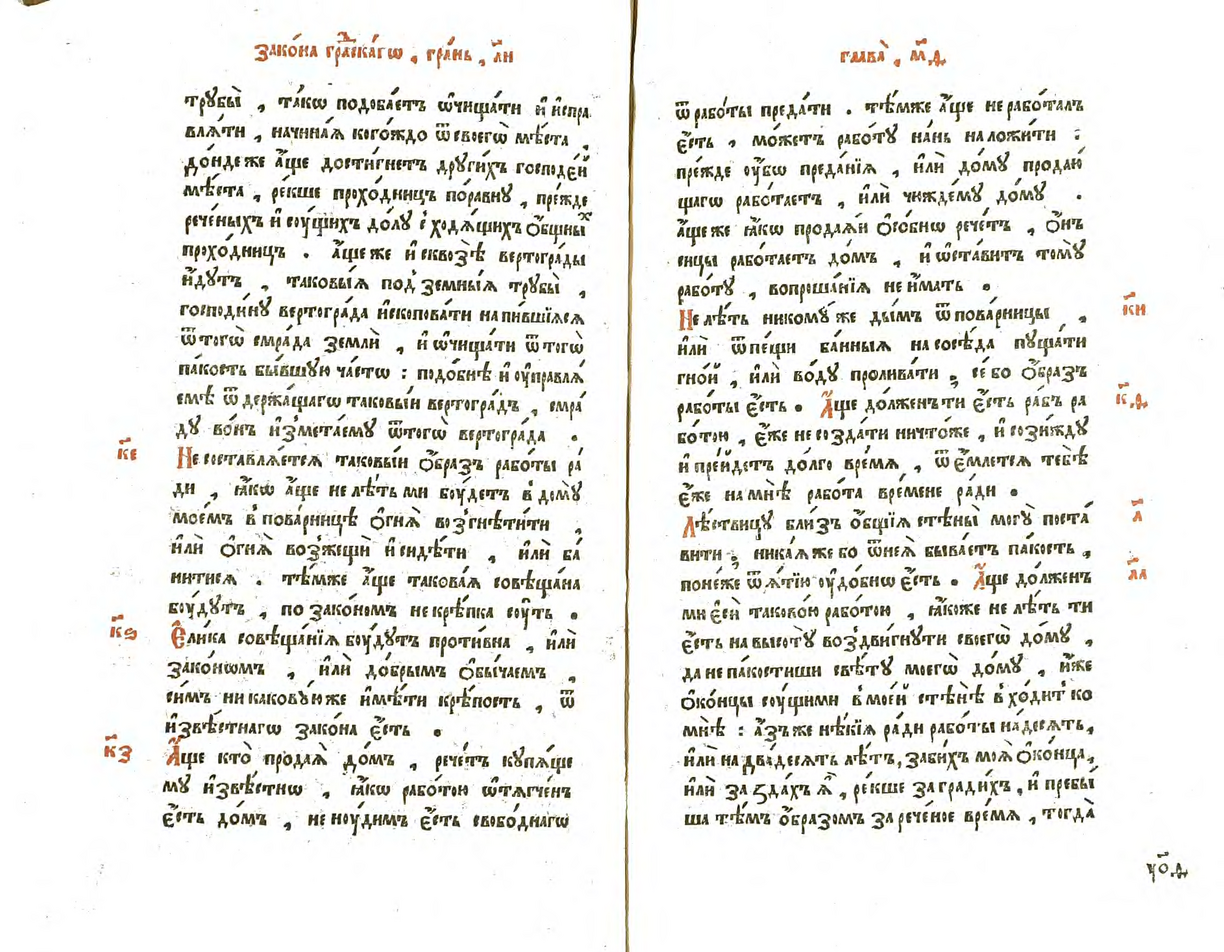 Зако́на гра́дскагѡ , гра́нь , л҃и
трꙋбы̀ , та́кѡ подоба́етъ ѡ҆чища́ти и҆ и҆спра
влѧ́ти , начина́ѧ кого́ждо ѿ своегѡ̀ мѣ́ста ,
до́ндеже а҆́ще дости́гнетъ дрꙋги́хъ господе́й
мѣ́ста , ре́кше прохо́дницъ по́равнꙋ , пре́жде
рече́ныхъ и҆ сꙋ́щихъ до́лꙋ с̾ходѧ́щихъ ѻ҆́бщиыⷯ
прохо́дницъ . а҆́ще же и҆ сквозѣ̀ вертогра́ды
и҆́дꙋтъ , таковы́ѧ под̾зе́мныѧ трꙋбы̀ ,
господи́нꙋ вертогра́да и҆скопова́ти напи́вшїѧсѧ
ѿ тогѡ̀ смра́да землѝ , и҆ ѡ҆чища́ти ѿ тогѡ̀
па́кость бы́вшꙋю ча́стѡ : подо́бнѣ и҆ ᲂу҆правлѧ́
емѣ ѿ держа́щагѡ таковы́и вертогра́дъ , смра́
дꙋ во́нъ и҆змета́емꙋ ѿ тогѡ̀ вертогра́да .
к҃е
Не составлѧ́етсѧ таковы́и ѻ҆́бразъ рабо́ты ра́
ди , ꙗ҆́кѡ а҆́ще не лѣ́ть ми бꙋ́детъ в̾ домꙋ̀
мое́мъ в̾ пова́рницѣ ѻ҆гнѧ̀ воз̾гнѣ́тити ,
и҆лѝ ѻ҆гнѧ̀ воз̾же́щи и҆ сидѣ́ти , и҆лѝ ба́
нитисѧ . тѣ́мже а҆́ще такова́ѧ совѣща́на
бꙋ́дꙋтъ , по зако́номъ не крѣ́пка сꙋ́ть .
к҃ѕ
Е҆ли́ка совѣща́нїѧ бꙋ́дꙋтъ проти́вна , и҆лѝ
зако́нѡмъ , и҆лѝ до́брымъ ѻ҆бы́чаемъ ,
си́мъ никаковꙋ́юже и҆мѣ́ти крѣ́пость , ѿ
и҆звѣ́стнагѡ зако́на є҆́сть .
к҃з
А҆́ще кто̀ прода́ѧ до́мъ , рече́тъ кꙋпѧ́ще
мꙋ и҆звѣ́стнѡ , ꙗ҆́кѡ рабо́тою ѡ҆тѧгче́нъ
є҆́сть до́мъ , не нꙋ́димъ є҆́сть свобо́днагѡ
Глава̀ , м҃д .
ѿ рабо́ты преда́ти . тѣ́мже а҆́ще не рабо́талъ
є҆́сть , мо́жетъ рабо́тꙋ на́нь наложи́ти :
пре́жде ᲂу҆́бѡ преда́нїѧ , и҆лѝ до́мꙋ продаю́
щагѡ рабо́таетъ , и҆лѝ чꙋжде́мꙋ до́мꙋ .
а҆́ще же ꙗ҆́кѡ прода́ѧи ѻ҆со́бнѡ рече́тъ , ѻ҆́нъ
сицы рабо́таетъ до́мъ , и҆ ѡ҆ста́витъ томꙋ̀
рабо́тꙋ , вопроша́нїѧ не и҆́мать .
к҃и
Не лѣ́ть никомꙋ́же ды́мъ ѿ пова́рницы ,
и҆лѝ ѿ пе́щи ба́нныѧ на сосѣ́да пꙋща́ти
гно́й , и҆лѝ во́дꙋ пролива́ти , се́ бо ѻ҆́бразъ
к҃д .
рабо́ты є҆́сть . А҆́ще до́лженъ ти є҆́сть ра́бъ ра
бо́тою , є҆́же не созда́ти ничто́же , и҆ сози́ждꙋ
и҆ пре́йдетъ до́лго вре́мѧ , ѿе́млетсѧ тебѣ̀
є҆́же на мнѣ̀ рабо́та вре́мене ра́ди .
л҃
Лѣ́ствицꙋ бли́зъ ѻ҆́бщїѧ стѣны̀ могꙋ̀ поста́
вити , ника́ѧже бо ѿ неѧ̀ быва́етъ па́кость ,
л҃а
поне́же ѿѧ́тїю ᲂу҆до́бнѡ є҆́сть . А҆́ще до́лженъ
ми є҆сѝ таково́ю рабо́тою , ꙗ҆́коже не лѣ́ть ти
є҆́сть на высотꙋ̀ воздви́гнꙋти своегѡ̀ до́мꙋ ,
да не па́костиши свѣ́тꙋ моегѡ̀ до́мꙋ , и҆́же
ѻ҆ко́нцы сꙋ́щими в̾ мое́й стѣнѣ̀ в̾хо́дитъ ко
мнѣ̀ : а҆́зъ же нѣ́кїѧ ра́ди рабо́ты на де́сѧть ,
и҆лѝ на два́десѧть лѣ́тъ, заби́хъ моѧ̀ ѻ҆ко́нца,
и҆лѝ за ꙁда́хъ ѧ҆̀ , ре́кше загради́хъ, и҆ пребы́
ша тѣ́мъ ѻ҆́бразомъ за рече́ное вре́мѧ , тогда̀
ѵ҃ѻ.д